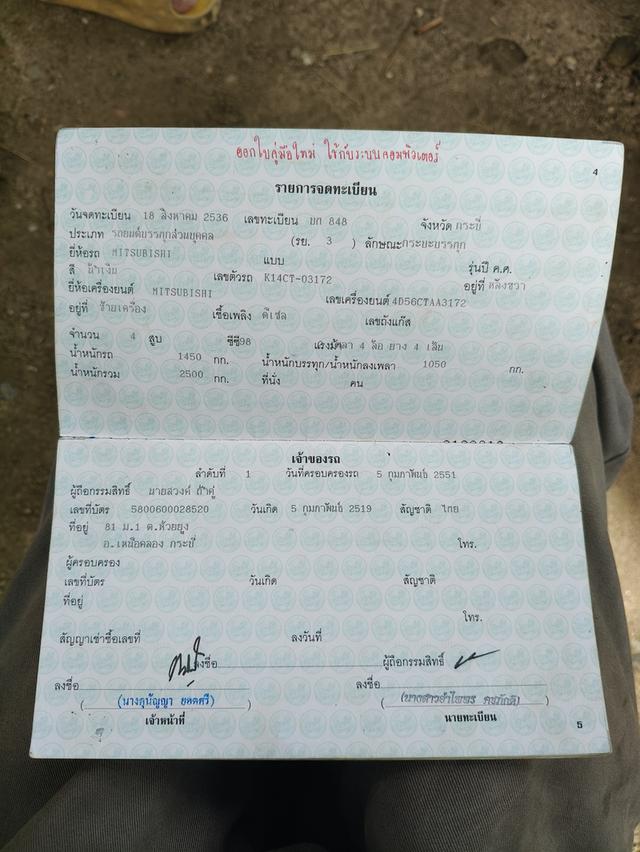 ออกใบคู่มือใหม่ ใช้กับระบบคอมพิวเตอร์
4
รายการจดทะเบียน
วันจดทะเบียน 18 สิงหาคม 2536 เลขทะเบียน บก 848 จังหวัด กระบี่
ประเภท รถยนต์บรรทุกส่วนบุคคล (รย. 3 ) ลักษณะ กระบะบรรทุก
ยี่ห้อรถ MITSUBISHI แบบ รุ่นปี ค.ศ.
สี น้ำเงิน เลขตัวรถ K14CT-03172 อยู่ที่ หลังขวา
ยี่ห้อเครื่องยนต์ MITSUBISHI เลขเครื่องยนต์ 4D56CTAA3172
อยู่ที่ ซ้ายเครื่อง เชื้อเพลิง ดีเซล เลขถังแก๊ส
จำนวน 4 สูบ ซีซี 98 แรงม้า 2 เพลา 4 ล้อ ยาง 4 เส้น
น้ำหนักรถ 1450 กก. น้ำหนักบรรทุก/น้ำหนักลงเพลา 1050 กก.
น้ำหนักรวม 2500 กก. ที่นั่ง คน
เจ้าของรถ
ลำดับที่ 1 วันที่ครอบครองรถ 5 กุมภาพันธ์ 2551
ผู้ถือกรรมสิทธิ์ นายสวงค์ ถ้ำคู่
เลขที่บัตร 5800600028520 วันเกิด 5 กุมภาพันธ์ 2519 สัญชาติ ไทย
ที่อยู่ 81 ม.1 ต.ห้วยยูง
อ.เหนือคลอง กระบี่ โทร.
ผู้ครอบครอง
เลขที่บัตร วันเกิด สัญชาติ
ที่อยู่
โทร.
สัญญาเช่าซื้อเลขที่ ลงวันที่
ลงชื่อ ผู้ถือกรรมสิทธิ์
ลงชื่อ ลงชื่อ
(นางคุนัญญา ยอดศรี) (นางสาวอำไพพร คชภักดี)
เจ้าหน้าที่ นายทะเบียน
5